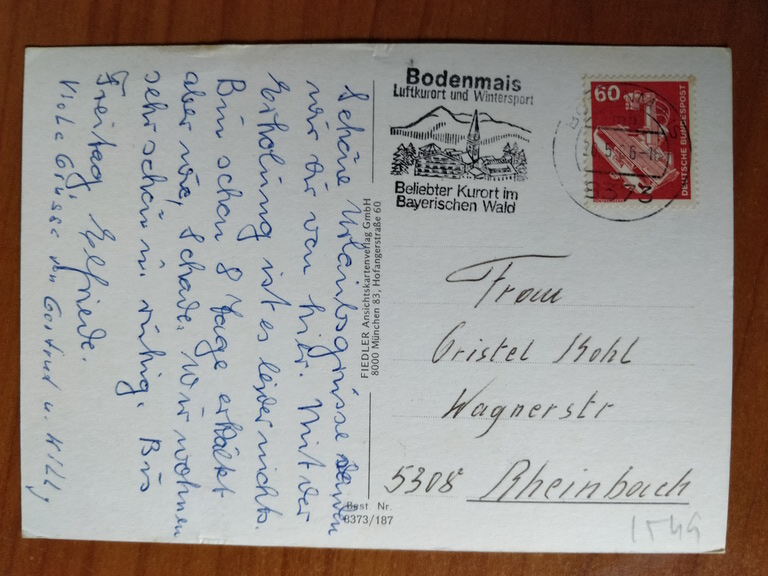 Schöne Urlaubsgrüsse senden
wir dir von hier. Mit der
Erholung ist es leider nichts.
Bin schon 8 Tage erkältet
aber wie, Schade. Wir wohnen
sehr schön u. ruhig. Bis
Freitag, Elfriede.
Viele Grüsse von Gertrud u. Willy
FIEDLER Ansichtskartenverlag GmbH
8000 München 83, Hofangerstraße 60
Best Nr.
8373/187
Bodenmais
Luftkurort und Wintersport
Beliebter Kurort im
Bayerischen Wald
60
DEUTSCHE BUNDESPOST
Frau
Cristel Kohl
Wagnerstr
5308 Rheinbach